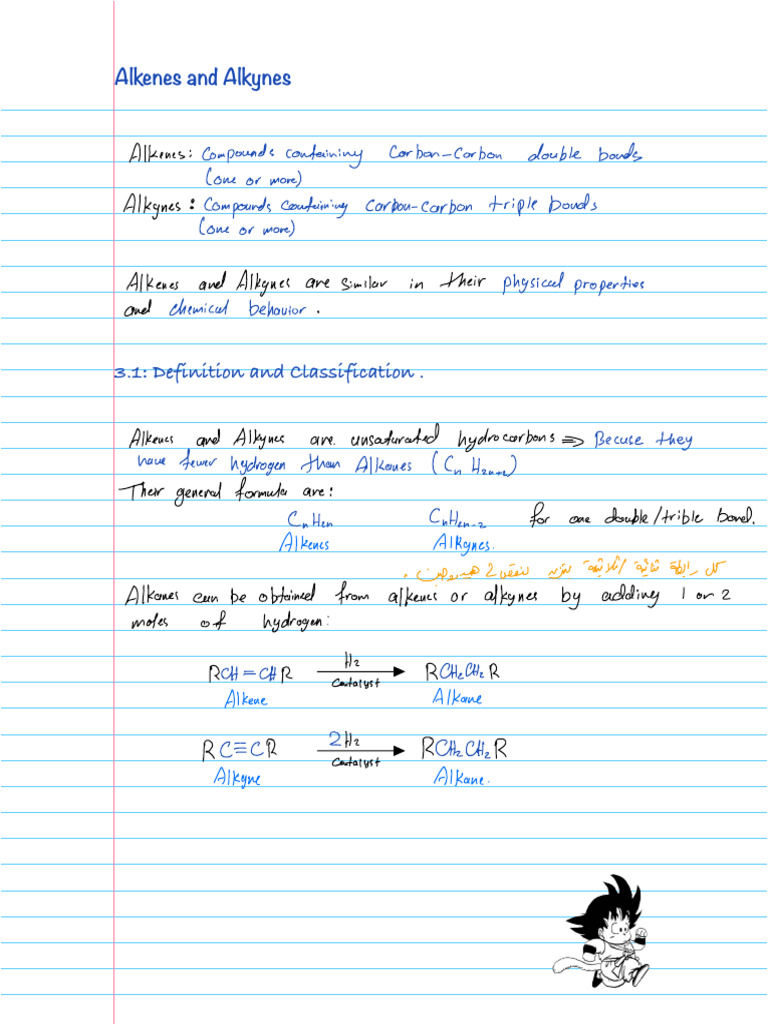 Alkenes and Alkynes
Alkenes: Compounds containing Carbon-Carbon double bonds
(one or more)
Alkynes: Compounds containing carbon-carbon triple bonds
(one or more)
Alkenes and Alkynes are similar in their physical properties
and chemical behavior.
3.1: Definition and Classification.
Alkenes and Alkynes are unsaturated hydrocarbons => Becuse they
have fewer hydrogen than Alkanes (CnH2n+2)
Their general formula are:
CnH2n CnH2n-2 for one double/trible bond.
Alkenes Alkynes.
كل رابطة ثنائية / ثلاثية
Alkanes can be obtained from alkenes or alkynes by adding 1 or 2
moles of hydrogen:
RCH=CHR H2 Catalyst RCH2CH2R
Alkene Alkane
RC≡CR 2H2 Catalyst RCH2CH2R
Alkyne Alkane.